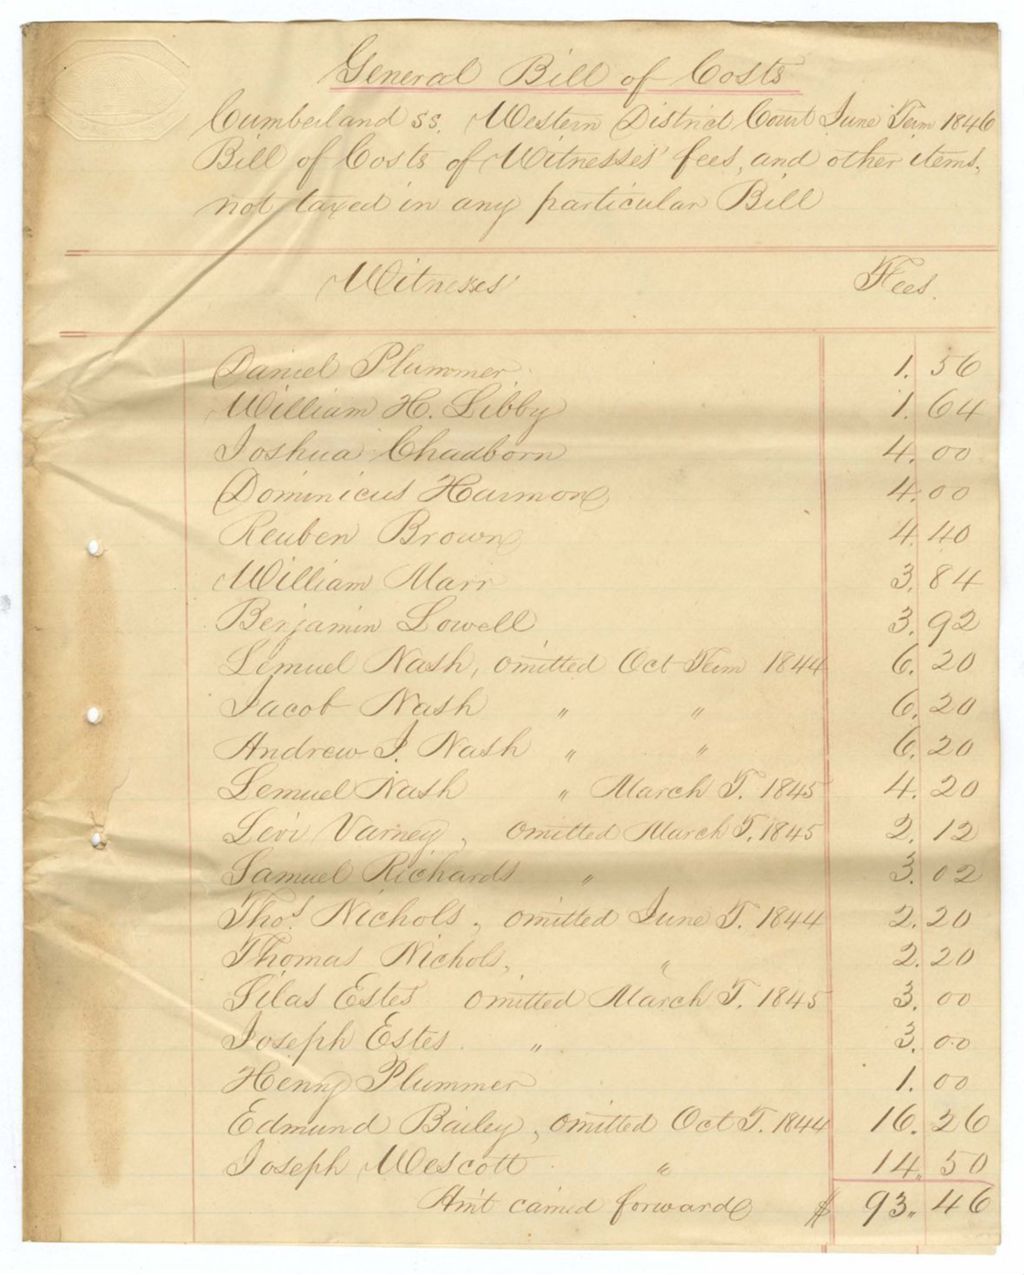 General Bill of Costs
Cumberland ss. Western District Court June Term 1846
Bill of Costs of Witnesses' fees, and other items,
not taxed in any particular Bill
Witnesses' Fees.
Daniel Plummer 1. 56
William H. Libby 1. 64
Joshua Chadborn 4. 00
Dominicus Harmon 4. 00
Reuben Brown 4. 40
William Marr 3. 84
Benjamin Lowell 3. 92
Lemuel Nash, omitted Oct Term 1844 6. 20
Jacob Nash " " 6. 20
Andrew J. Nash " " 6. 20
Lemuel Nash " March T. 1845 4. 20
Levi Varney, omitted March T. 1845 2. 12
Samuel Richards " 3. 02
Thos. Nichols, omitted June T. 1844 2. 20
Thomas Nichols, " 2. 20
Silas Estes omitted March T. 1845 3. 00
Joseph Estes " 3. 00
Henry Plummer 1. 00
Edmund Bailey, omitted Oct T. 1844 16. 26
Joseph Wescott " 14. 50
Am't carried forward $ 93. 46